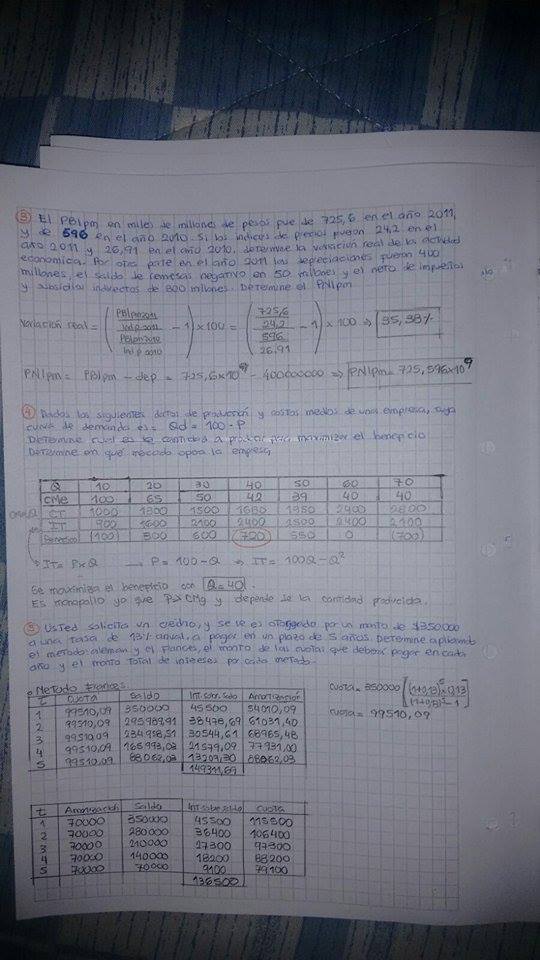 ③ El PBIpm en miles de millones de pesos fue de 725,6 en el año 2011,
y de 596 en el año 2010. Si los indices de precios fueron 24,2 en el
año 2011 y 26,91 en el año 2010, determine la variación real de la actividad
economica. Por otra parte en el año 2011 las depreciaciones fueron 400
millones, el saldo de remesas negativo en 50 millones y el neto de impuestos
y subsidios indirectos de 800 millones. Determine el PNIpm
Variación real = ( PBIpm2011 / Ind p 2011 / PBIpm2010 / Ind p 2010 - 1 ) × 100 = ( 725,6 / 24,2 / 596 / 26,91 - 1 ) × 100 ⇒ 35,38%
PNIpm = PBIpm - dep = 725,6x10⁹ - 400000000 ⇒ PNIpm = 725,596x10⁹
④ Dados los siguientes datos de producción y costos medios de una empresa, cuya
curva de demanda es = Qd = 100 - P
Determine cual es la cantidad a producir para maximizar el beneficio
Determine en qué mercado opera la empresa
Q 10 20 30 40 50 60 70
CMe 100 65 50 42 39 40 40
CT 1000 1300 1500 1680 1950 2400 2800
IT 900 1600 2100 2400 2500 2400 2100
Beneficio (100) 300 600 720 550 0 (700)
IT = PxQ → P = 100-Q ⇒ IT = 100Q - Q²
Se maximiza el beneficio con Q=40.
Es monopolio ya que P>CMg y depende de la cantidad producida.
⑤ Usted solicita un credito, y se le es otorgado por un monto de $350000
a una tasa de 13% anual, a pagar en un plazo de 5 años. Determine aplicando
el metodo aleman y el frances, el monto de las cuotas que deberá pagar en cada
año y el monto total de intereses por cada metodo.
• Metodo Frances
t Cuota Saldo Int. sobre saldo Amortización
1 99510,09 350000 45500 54010,09
2 99510,09 295989,91 38478,69 61031,40
3 99510,09 234958,51 30544,61 68965,48
4 99510,09 165993,03 21579,09 77931,00
5 99510,09 88062,03 13209,30 88062,03
149311,69
Cuota = 350000 [ (1+0,13)⁵ x 0,13 / (1+0,13)⁵ - 1 ]
Cuota = 99510,09
t Amortización Saldo Int sobre saldo Cuota
1 70000 350000 45500 115500
2 70000 280000 36400 106400
3 70000 210000 27300 97300
4 70000 140000 18200 88200
5 70000 70000 9100 79100
136500